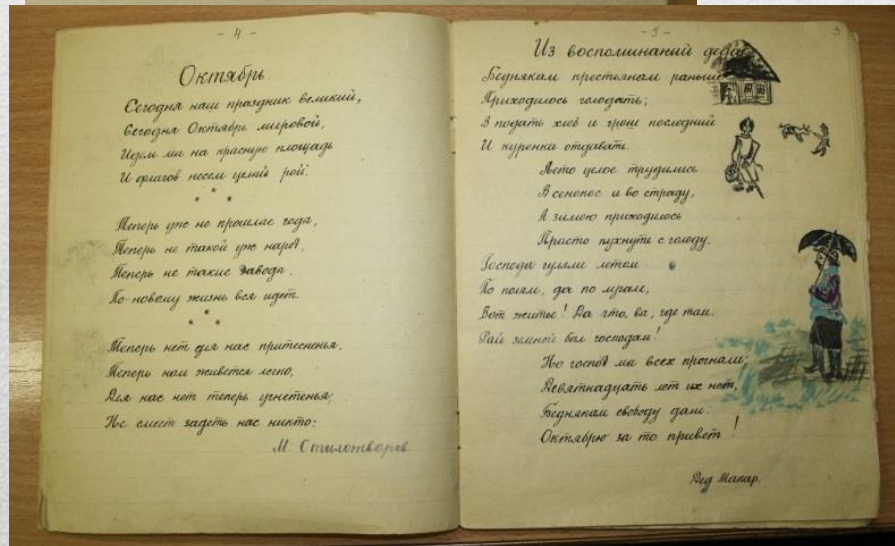 - 4 -
Октябрь.
Сегодня наш праздник великий,
Сегодня Октябрь мировой,
Идем мы на красную площадь
И флагов несем целый рой.
* * *
Теперь уж не прошлые года,
Теперь не такой уж народ,
Теперь не такие завода,
По-новому жизнь вся идет.
* * *
Теперь нет для нас притесненья,
Теперь нам живется легко,
Для нас нет теперь угнетенья,
Не смеет задеть нас никто.
М. Стихотворев
- 5 -
Из воспоминаний деда
Беднякам крестьянам раньше
Приходилось голодать;
В подать хлеб и грош последний
И куренка отдавать.
Лето целое трудились
В сенокос и во страду,
А зимою приходилось
Просто пухнуть с голоду.
Господа гуляли летом
По полям, да по
Вот житье! Да что, вы, где там.
Рай земной был господам!
Но господ мы всех прогнали,
Девятнадцать лет их нет,
Беднякам свободу дали.
Октябрю за то привет!
Дед Макар.